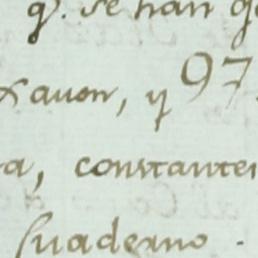 q. se han q
xavon, y 97
a, constante
Quaderno.